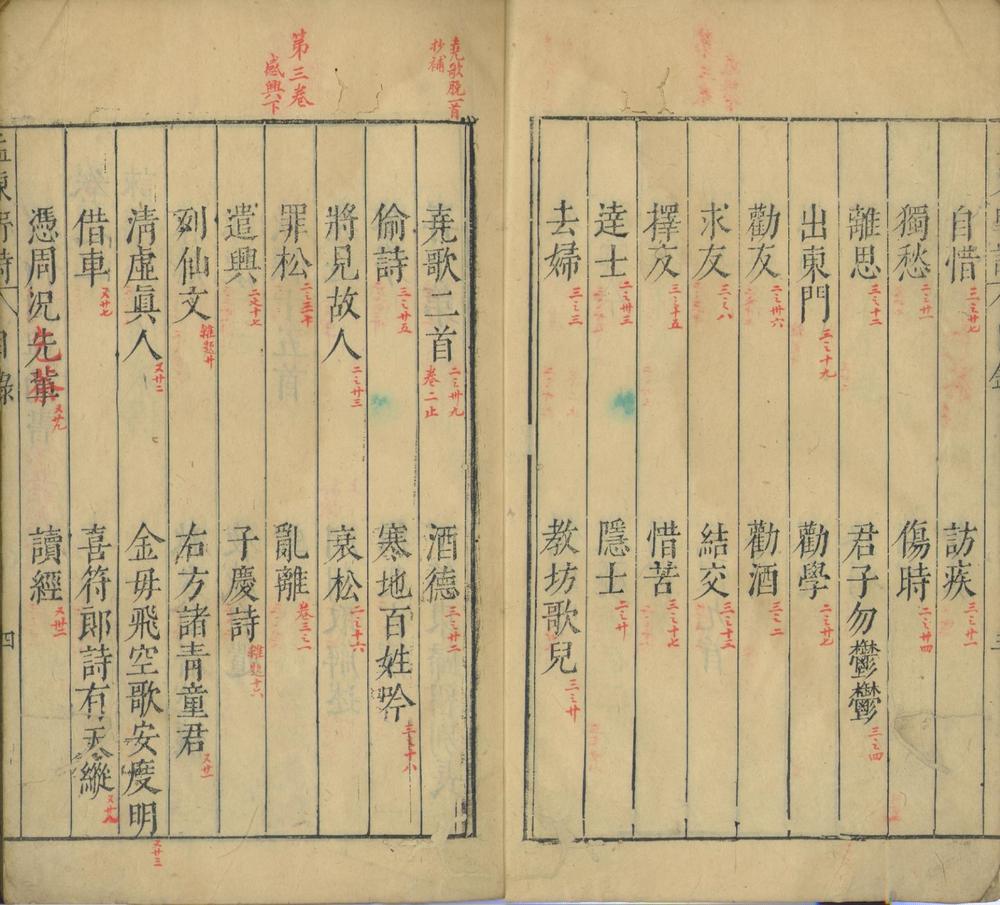 自惜 三之廿七
訪疾 三之廿一
獨愁 二之廿一
傷時 二之廿四
離思 三之十二
君子勿鬱鬱 三之四
出東門 二之十九
勸學 二之廿七
勸友 二之廿六
勸酒 三之二
求友 三之八
結交 三之十三
擇友 三之十五
惜苦 三之十七
達士 二之廿三
隱士 二之廿
去婦 三之三
教坊歌兒 三之廿
堯歌脫一首
抄補
堯歌二首 二之廿九
卷二止
酒德 三之廿二
偷詩 三之廿五
寒地百姓吟 三之十八
第三卷
感興下
將見故人 二之廿三
衰松 二之十六
罪松 二之三十
亂離 卷三之一
遣興 二之十七
子慶詩 雜題十六
列仙文 雜題廿
右方諸青童君 又廿一
清虛真人 又廿二
金母飛空歌安度明 又廿三
借車 又廿七
喜符郎詩有天縱 又廿八
憑周況先輩 又廿九
讀經 又卅一
孟東野詩 目錄
四